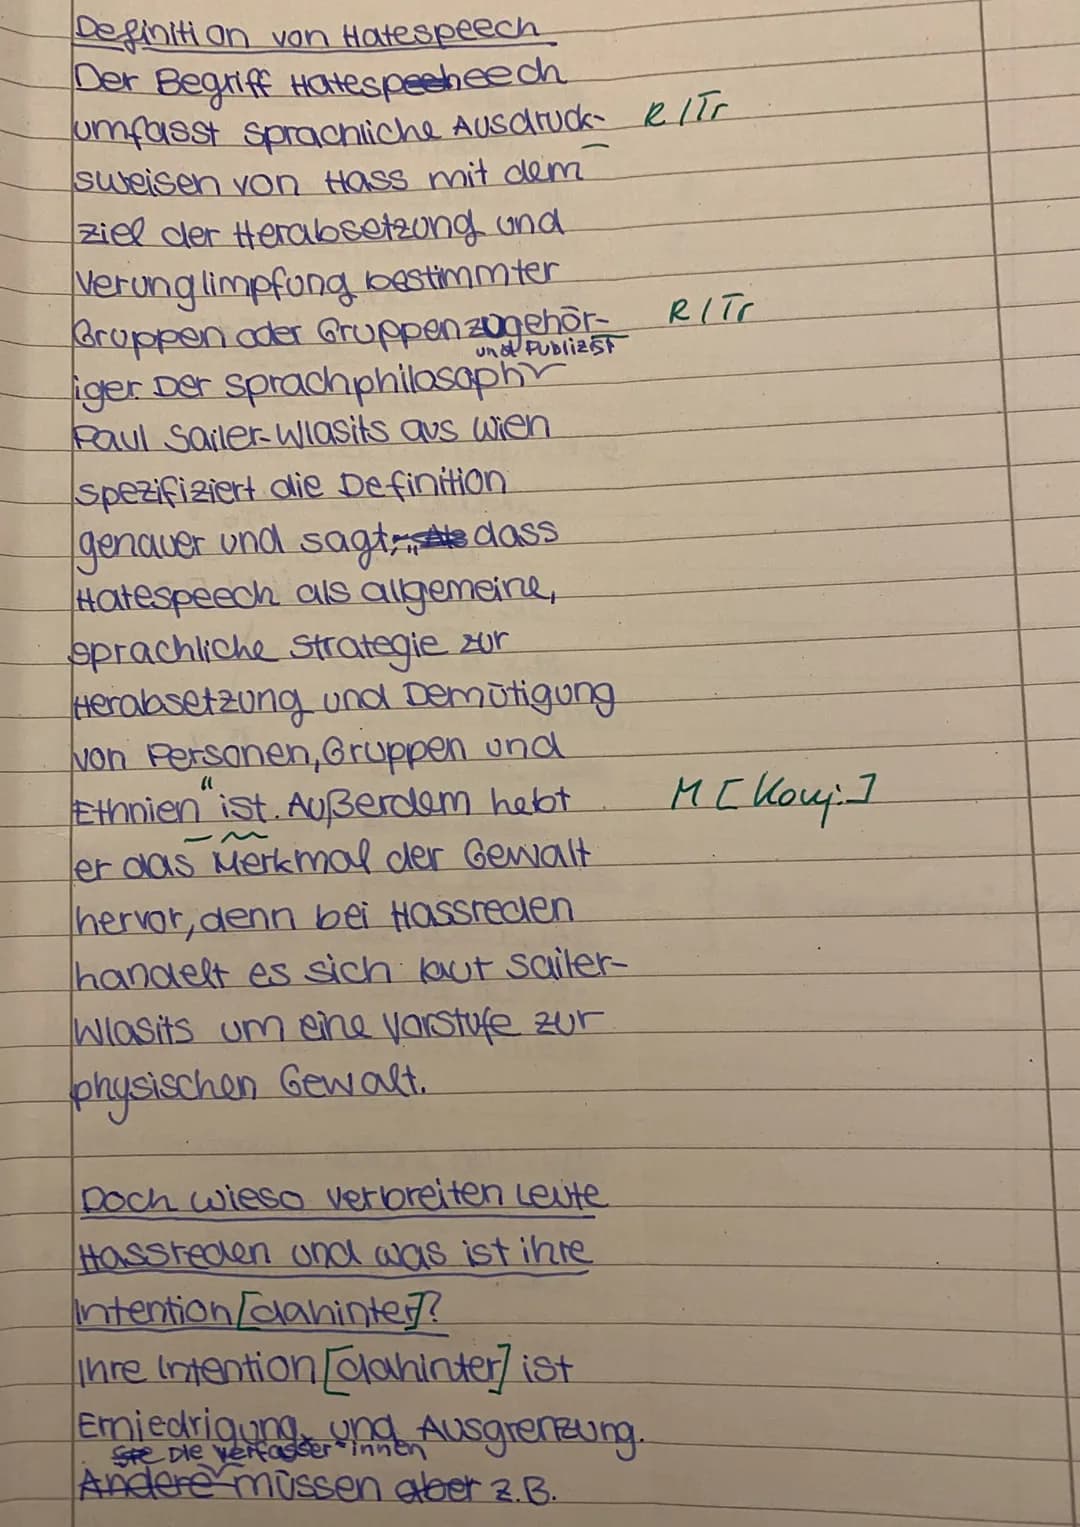 Definition von Hatespeech
Der Begriff Hatespeeheech
umfasst sprachliche Ausdruck- R/Tr
sweisen von Hass mit dem
ziel der Herabsetzung und
Verunglimpfung bestimmter
Gruppen oder Gruppenzugehör- R/Tr
und Publizist
iger. Der Sprachphilosoph
Paul Sailer-Wlasits aus Wien
spezifiziert die Definition
genauer und sagt, dass
Hatespeech als allgemeine,
sprachliche Strategie zur
Herabsetzung und Demütigung
von Personen, Gruppen und
Ethnien" ist. Außerdem hebt M [Konj.]
er das Merkmal der Gewalt
hervor, denn bei Hassreden
handelt es sich laut Sailer-
Wlasits um eine Vorstufe zur
physischen Gewalt.
Doch wieso verbreiten Leute
Hassreden und was ist ihre
Intention [dahinter]?
Ihre Intention [dahinter] ist
Erniedrigung und Ausgrenzung.
Sie Die Verfasser*innen
Andere müssen aber z.B.